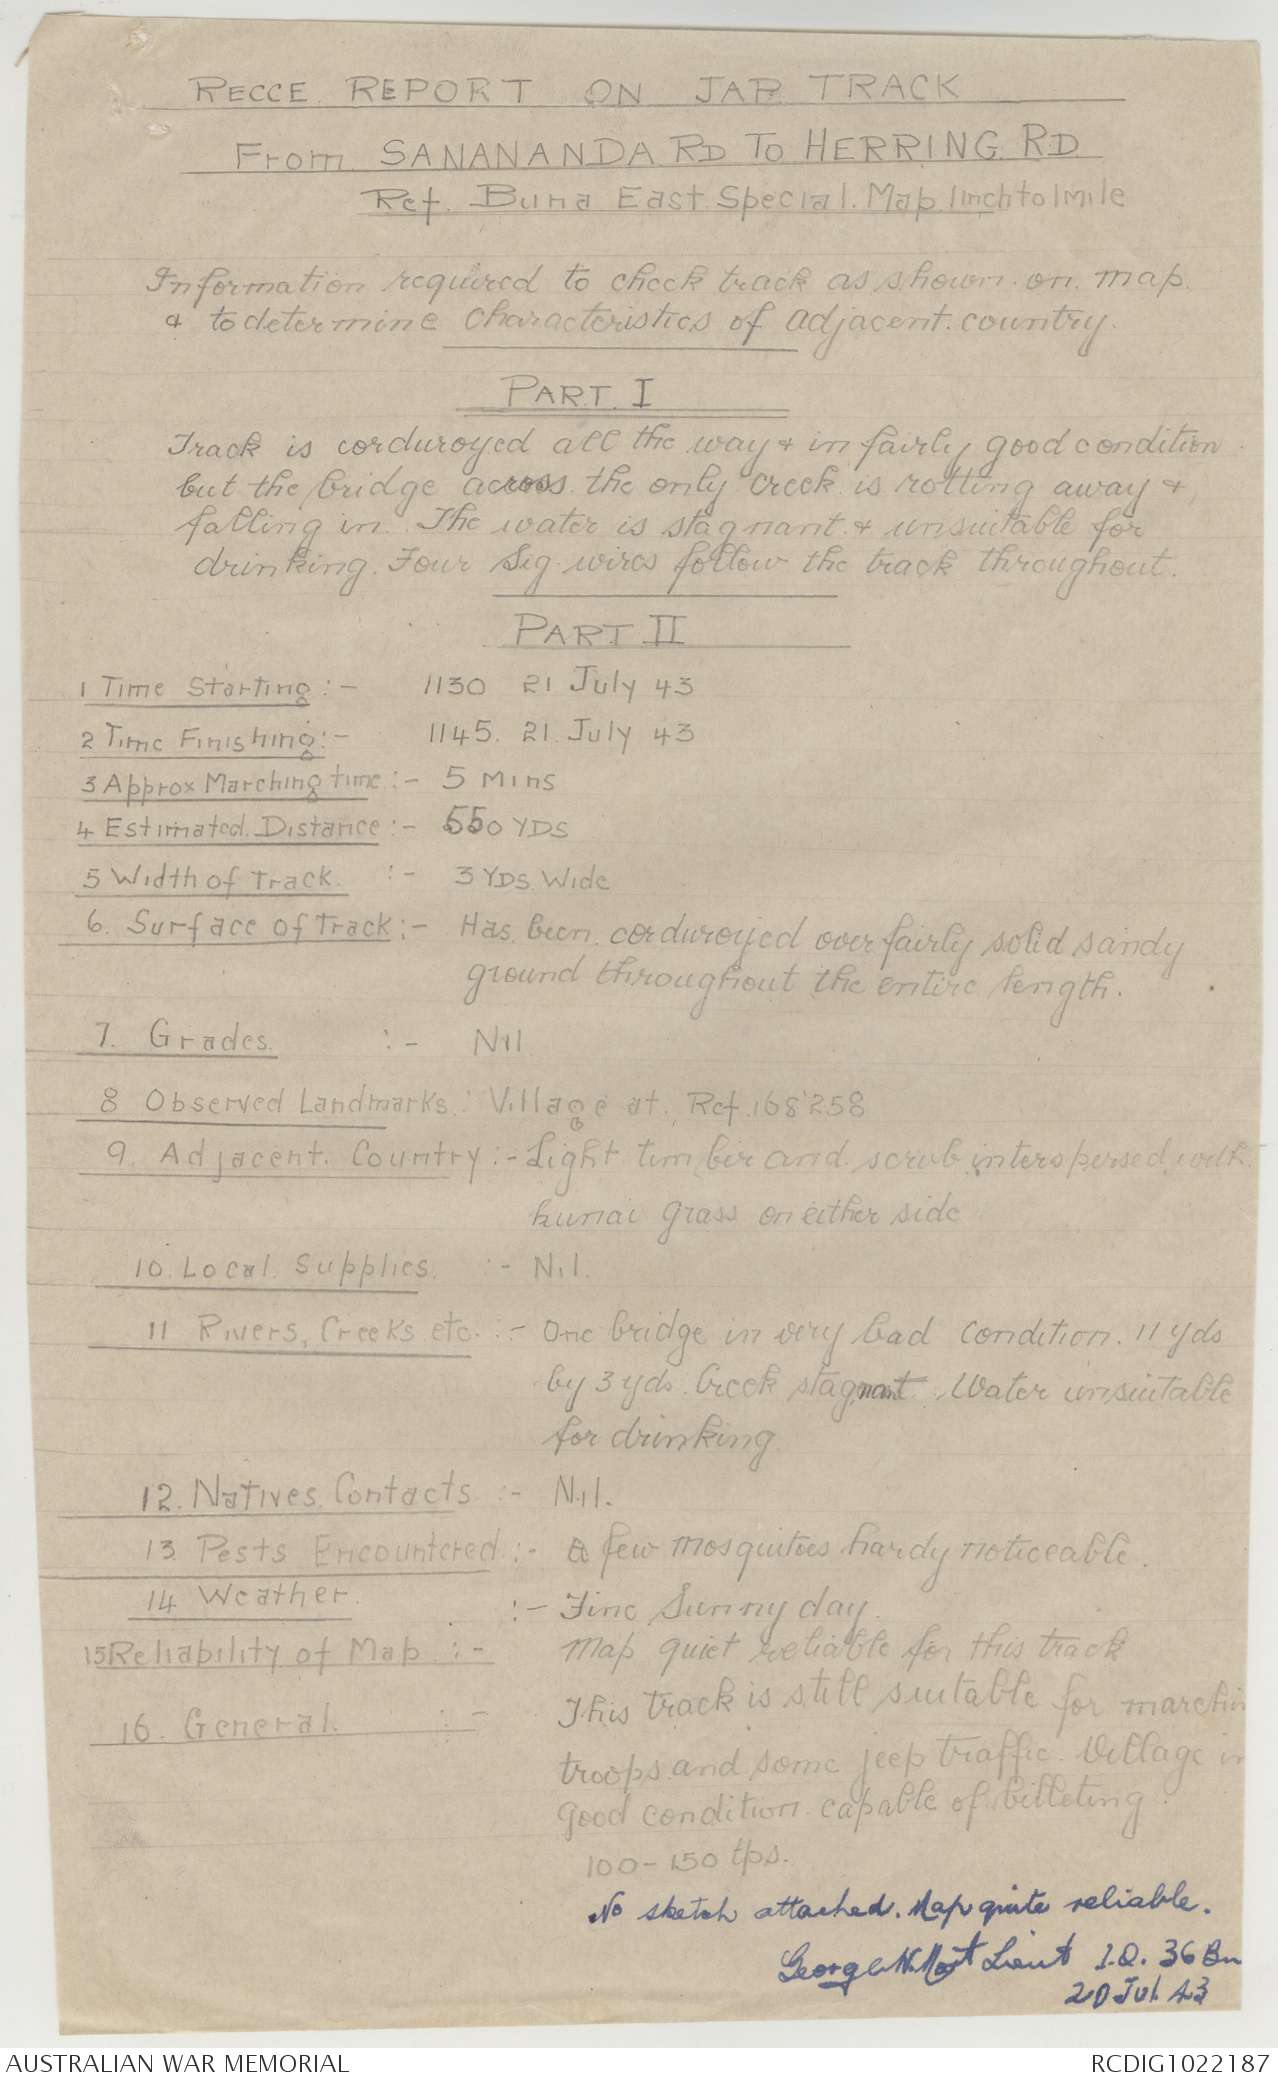 RECCE REPORT ON JAP TRACK
From SANANANDA RD To HERRING RD
Ref. Buna East Special. Map 1inch to 1Mile
Information required to check track as shown on map
& to determine characteristics of adjacent country.
PART I
Track is corduroyed all the way & in fairly good condition
but the bridge across the only creek is rotting away &
falling in. The water is stagnant & unsuitable for
drinking. Four Sig wires follow the track throughout.
PART II
1 Time Starting :- 1130 21 July 43
2 Time Finishing :- 1145. 21 July 43
3 Approx Marching time :- 5 Mins
4 Estimated Distance :- 550 YDS
5 Width of Track :- 3 YDS Wide
6. Surface of Track :- Has been corduroyed over fairly solid sandy
ground throughout the entire length.
7. Grades. :- Nil
8 Observed Landmarks : Village at Ref 168258
9. Adjacent Country :- Light timber and scrub interspersed with
kunai grass on either side
10. Local Supplies. :- Nil.
11 Rivers, Creeks etc. :- One bridge in very bad condition. 11 yds
by 3 yds. Creek stagnant. Water unsuitable
for drinking
12. Natives Contacts :- Nil.
13 Pests Encountered :- A few mosquitoes hardy noticeable.
14 Weather. :- Fine Sunny day.
15 Reliability of Map :- Map quiet reliable for this track
16. General. :- This track is still suitable for marchin
troops and some jeep traffic. Village in
good condition capable of billeting
100-150 tps.
No sketch attached. Map quite reliable.
George Lieut I.O. 36 Bn
20 Jul 43
AUSTRALIAN WAR MEMORIAL
RCDIG1022187